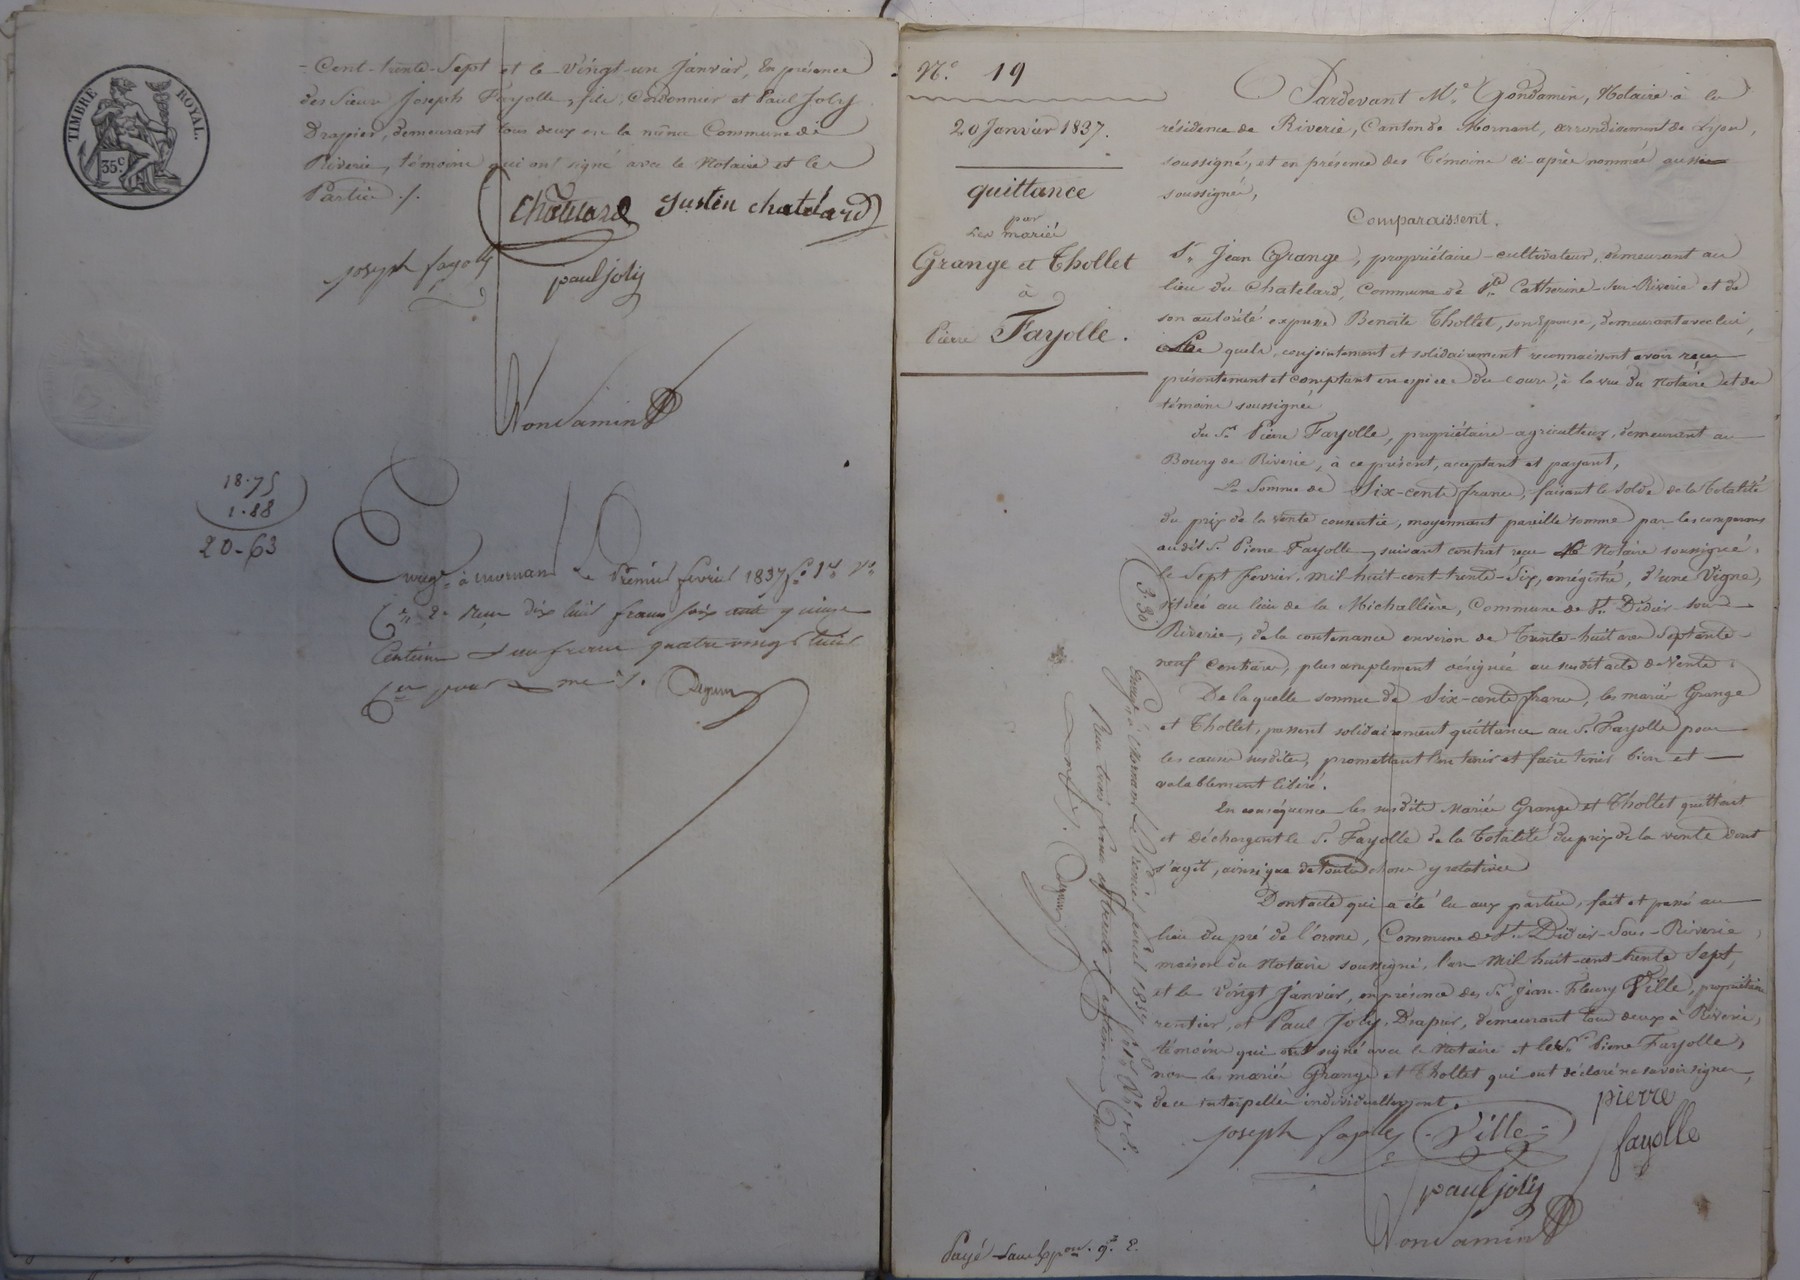 TIMBRE ROYAL.
35c.
- Cent-trente-Sept et le Vingt-un Janvier, En présence
des Sieurs Joseph Fayolle, fils, Cordonnier et Paul Joly
Drapier, demeurant tous deux en la même Commune de
Riverie, témoins qui ont signé avec le Notaire et les
Parties ./.
Chatelard Justin chatelard
joseph fayolle
paul joly
Gondamin
18.75
1.88
20-63
Enreg. à Mornant le Premier février 1837 fo
reçu dix huit francs soixante quinze
Centimes un franc quatre vingt huit
No. 19
20 Janvier 1837.
quittance
par
Les mariés
Grange et Thollet
à
Pierre Fayolle.
Pardevant Me. Gondamin, Notaire à la
résidence de Riverie, Canton de Mornant, arrondissement de Lyon,
soussigné, et en présence des Témoins ci-après nommés aussi
soussignés,
Comparaissent.
Sr. Jean Grange, propriétaire-cultivateur, demeurant au
lieu du Chatelard, Commune de Ste Catherine-sur-Riverie et de
son autorité expresse Benoite Thollet, son épouse, demeurant avec lui,
Lesquels, conjointement et solidairement reconnaissent avoir reçu
présentement et comptant en espèces du cours, à la vue du Notaire et des
témoins soussignés
du Sr. Pierre Fayolle, propriétaire-agriculteur, demeurant au
Bourg de Riverie, à ce présent, acceptant et payant,
La Somme de Six-cents francs, faisant le solde de la totalité
du prix de la vente consentie, moyennant pareille somme par les comparans
audit Sr. Pierre Fayolle, suivant contrat reçu Me Notaire soussigné,
le Sept fevrier, mil-huit-cent-trente-Six, enrégistré, d'une Vigne,
située au lieu de la Michallière, Commune de St. Didier-sous-
Riverie, de la contenance environ de Trente-huit ares Septante-
neuf centiares, plus amplement désignée au susdit acte de Vente.
De laquelle somme de Six-cents francs, les mariés Grange
et Thollet, passent solidairement quittance au Sr. Fayolle pour
les causes susdites, promettant l'en tenir et faire tenir bien et
valablement libéré.
En conséquence les susdits Mariés Grange et Thollet, quittent
et déchargent le Sr. Fayolle de la totalité du prix de la vente dont
s'agit, ainsi que de toutes choses y relatives
Dont acte qui a été lu aux parties, fait et passé au
lieu du pré de l'orme, Commune de St. Didier-Sous-Riverie,
maison du Notaire soussigné, l'an Mil huit-cent-trente Sept,
et le Vingt Janvier, en présence des Srs Jean-Fleury Ville, propriétaire
rentier, et Paul Joly, Drapier, demeurant tous deux à Riverie,
témoins qui ont signé avec le Notaire et le Sr. Pierre Fayolle,
non les mariés Grange et Thollet qui ont déclaré ne savoir signer,
de ce interpellés individuellement.
3.30
Enregistré à Mornant le Premier février 1837
Reçu trois francs trente Centimes
joseph fayolle
Ville
pierre
fayolle
paul joly
Gondamin